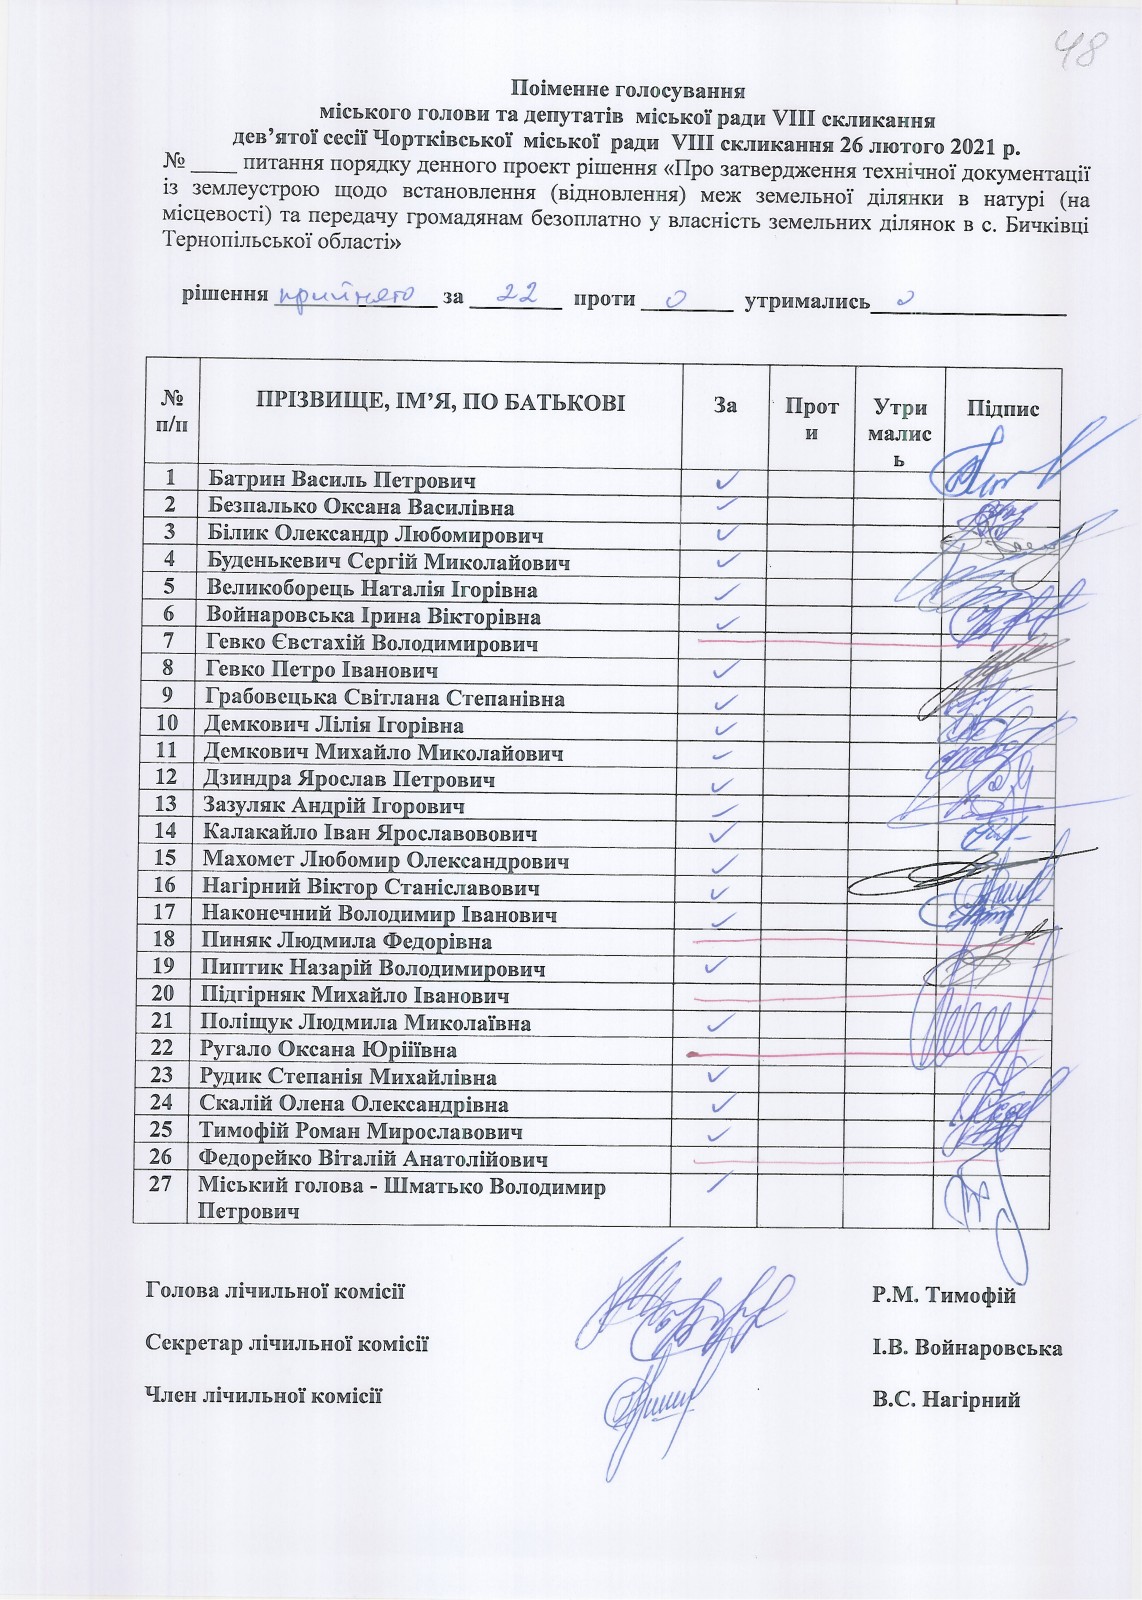 48
Поіменне голосування
міського голови та депутатів міської ради VIII скликання
дев’ятої сесії Чортківської міської ради VIII скликання 26 лютого 2021 р.
№ ____ питання порядку денного проект рішення «Про затвердження технічної документації
із землеустрою щодо встановлення (відновлення) меж земельної ділянки в натурі (на
місцевості) та передачу громадянам безоплатно у власність земельних ділянок в с. Бичківці
Тернопільської області»
рішення прийнято за 22 проти 0 утримались 0
№ п/п ПРІЗВИЩЕ, ІМ’Я, ПО БАТЬКОВІ За Проти Утрималисьь Підпис
1 Батрин Василь Петрович ✓
2 Безпалько Оксана Василівна ✓
3 Білик Олександр Любомирович ✓
4 Буденькевич Сергій Миколайович ✓
5 Великоборець Наталія Ігорівна ✓
6 Войнаровська Ірина Вікторівна ✓
7 Гевко Євстахій Володимирович
8 Гевко Петро Іванович ✓
9 Грабовецька Світлана Степанівна ✓
10 Демкович Лілія Ігорівна ✓
11 Демкович Михайло Миколайович ✓
12 Дзиндра Ярослав Петрович ✓
13 Зазуляк Андрій Ігорович ✓
14 Калакайло Іван Ярославовович ✓
15 Махомет Любомир Олександрович ✓
16 Нагірний Віктор Станіславович ✓
17 Наконечний Володимир Іванович ✓
18 Пиняк Людмила Федорівна
19 Пиптик Назарій Володимирович ✓
20 Підгірняк Михайло Іванович
21 Поліщук Людмила Миколаївна ✓
22 Ругало Оксана Юріїівна
23 Рудик Степанія Михайлівна ✓
24 Скалій Олена Олександрівна ✓
25 Тимофій Роман Мирославович ✓
26 Федорейко Віталій Анатолійович
27 Міський голова - Шматько Володимир ✓
Петрович
Голова лічильної комісії Р.М. Тимофій
Секретар лічильної комісії І.В. Войнаровська
Член лічильної комісії В.С. Нагірний